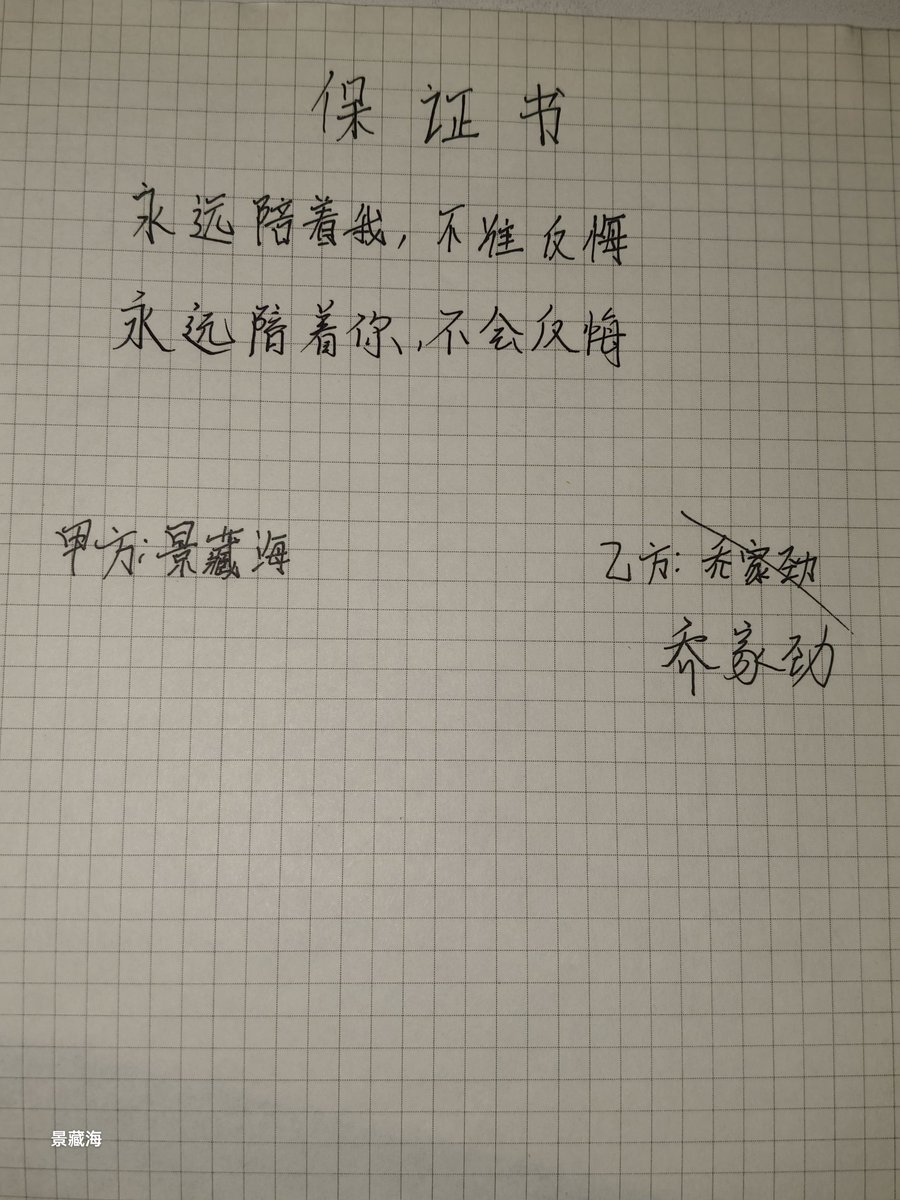 保证书
永远陪着我,不准反悔
永远陪着你,不会反悔
甲方:景藏海
乙方:乔家劲
乔家劲
景藏海